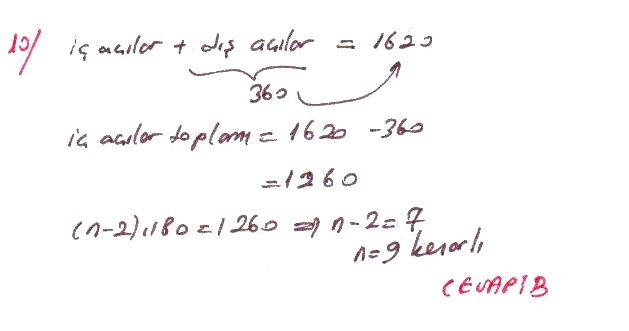 10/ iç açılar + dış açılar = 1620
360
iç açılar toplamı = 1620 - 360
= 1260
(n-2).180 = 1260 ⇒ n-2 = 7
n=9 kenarlı
CEVAP: B